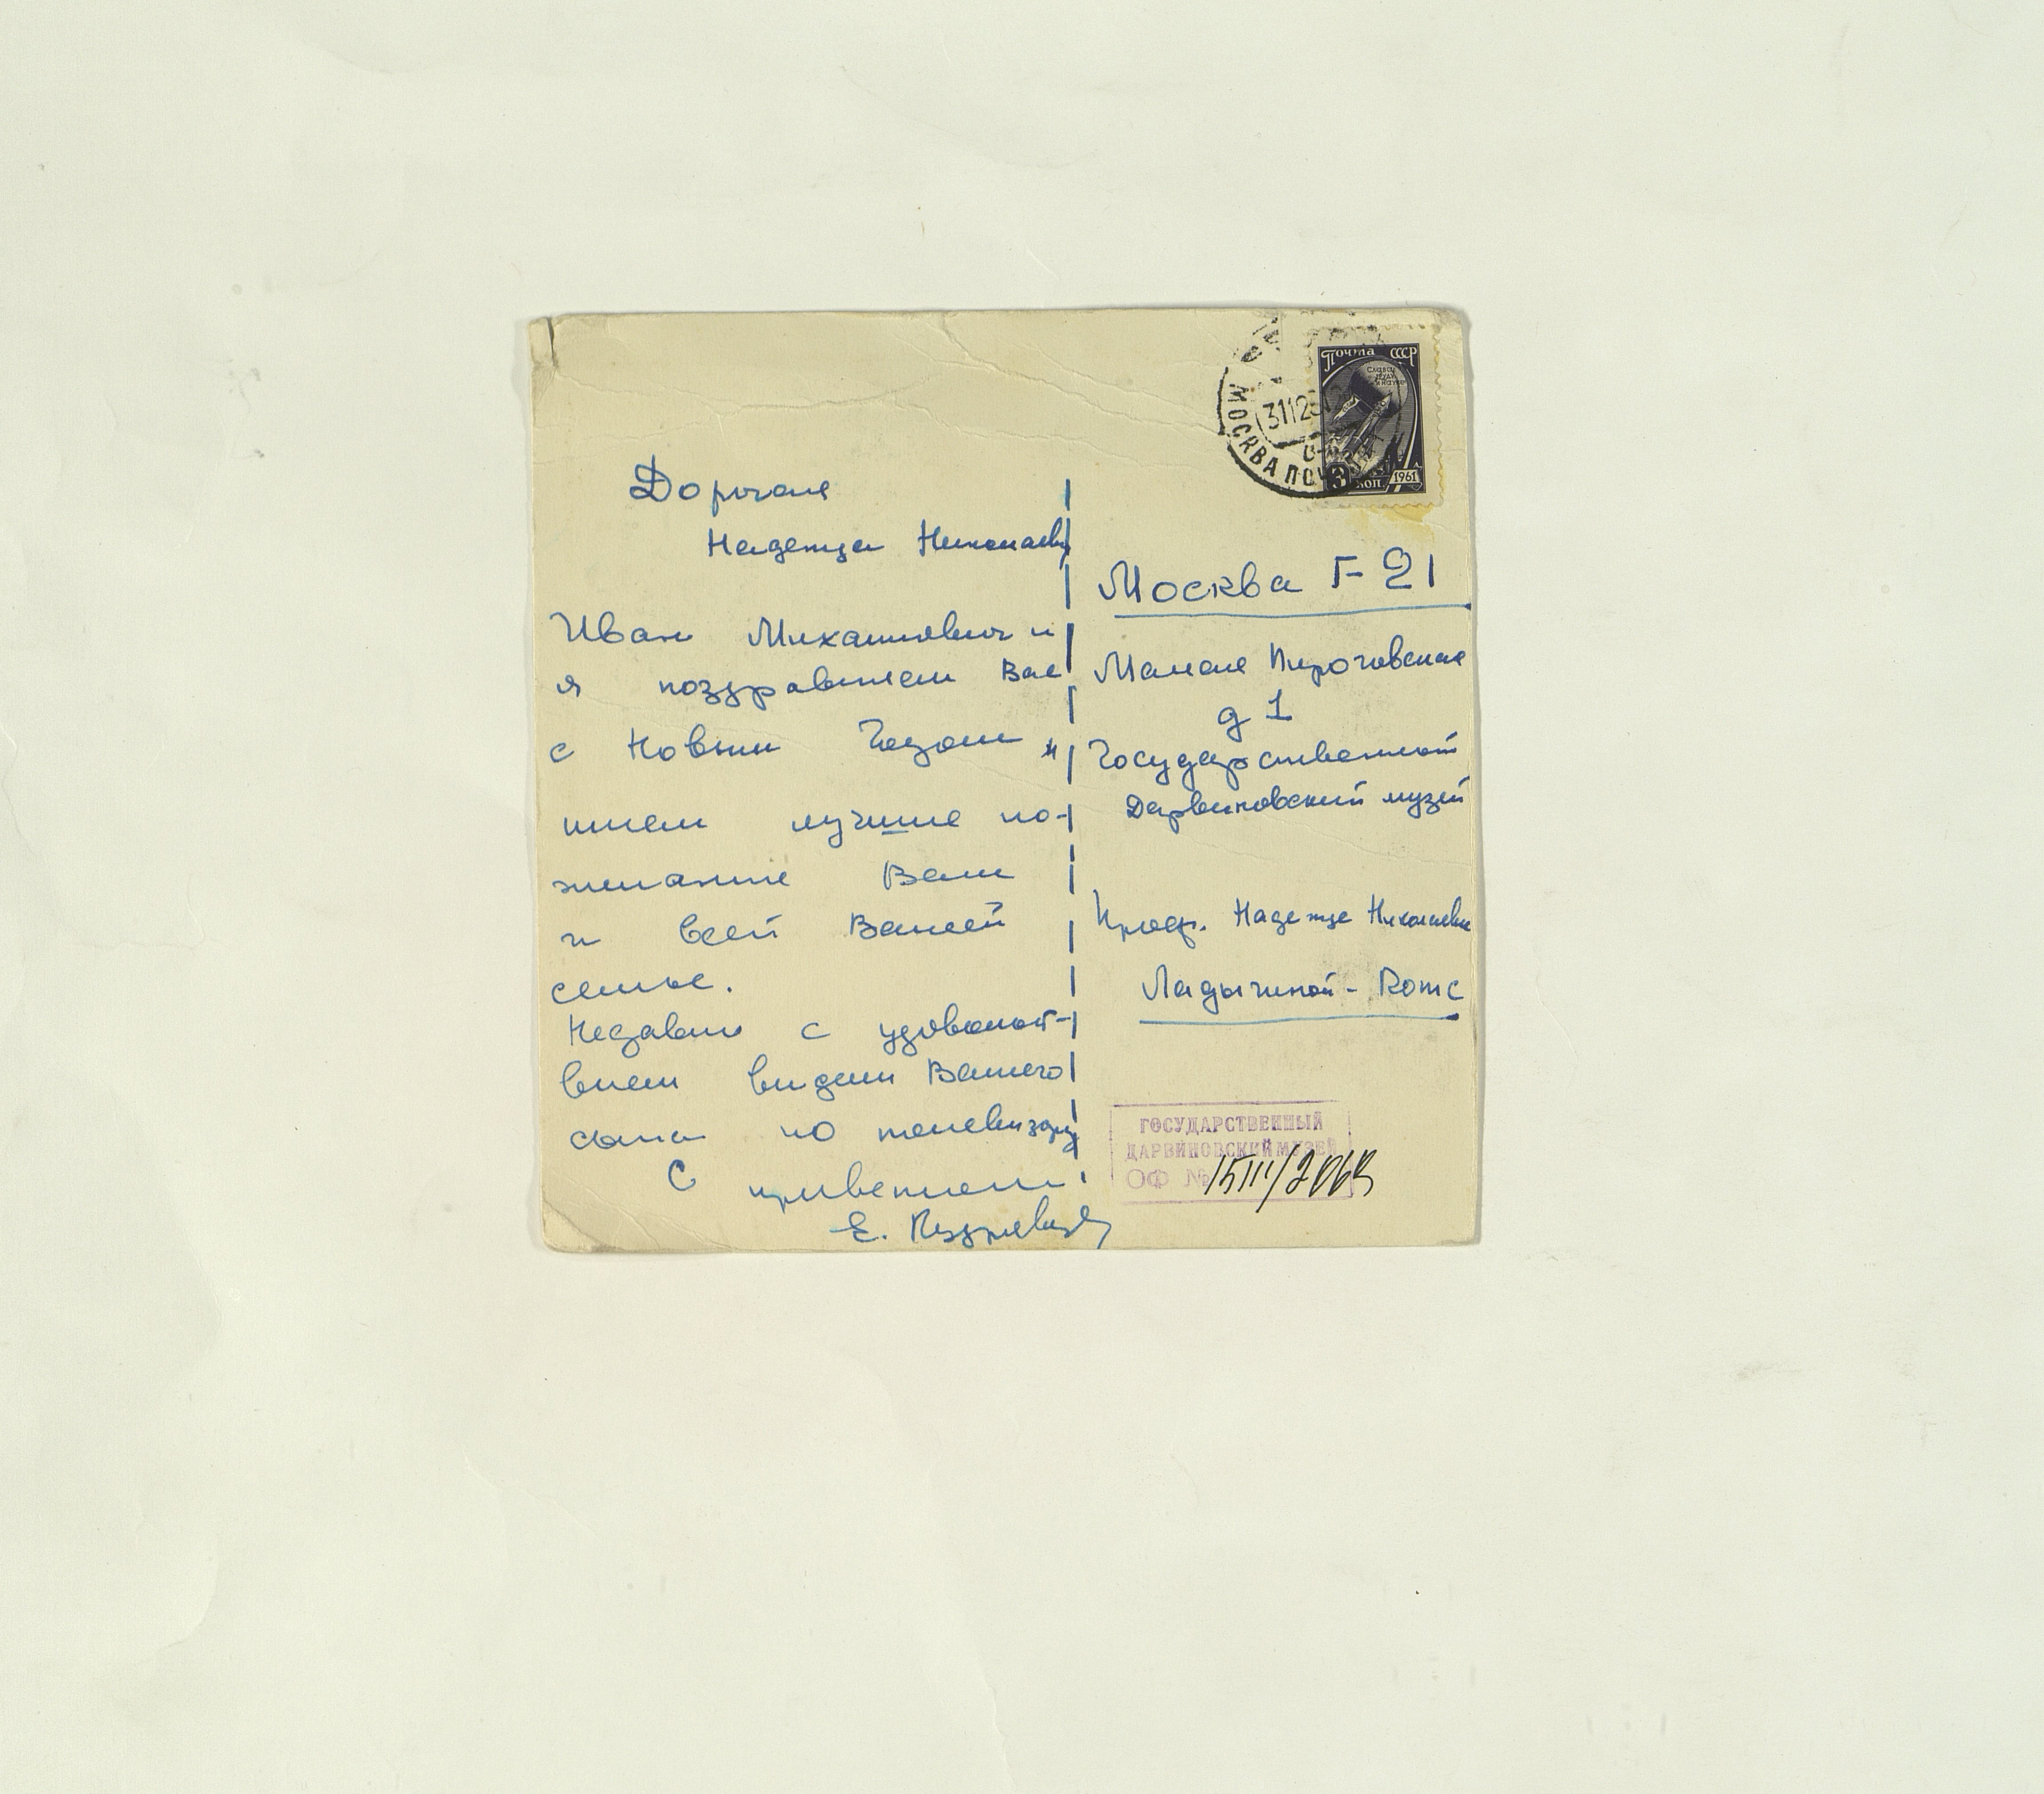 Дорогая
Надежда Николаевна
Иван Михайлович и
я поздравляем Вас
с Новым Годом и
шлем лучшие по-
желание Вам
и всей Вашей
семье.
Недавно с удовольст-
вием видели Вашего
сына по телевизору
С приветом
Е.
Почта СССР
Слава труду и науке
3 коп. 1961
МОСКВА
311261
Москва Г-21
Малая Пироговская
д 1
Государственный
Дарвиновский музей
Проф. Надежде Николаевне
Ладыгиной-Котс
ГОСУДАРСТВЕННЫЙ
ДАРВИНОВСКИЙ МУЗЕЙ
ОФ №15111/206